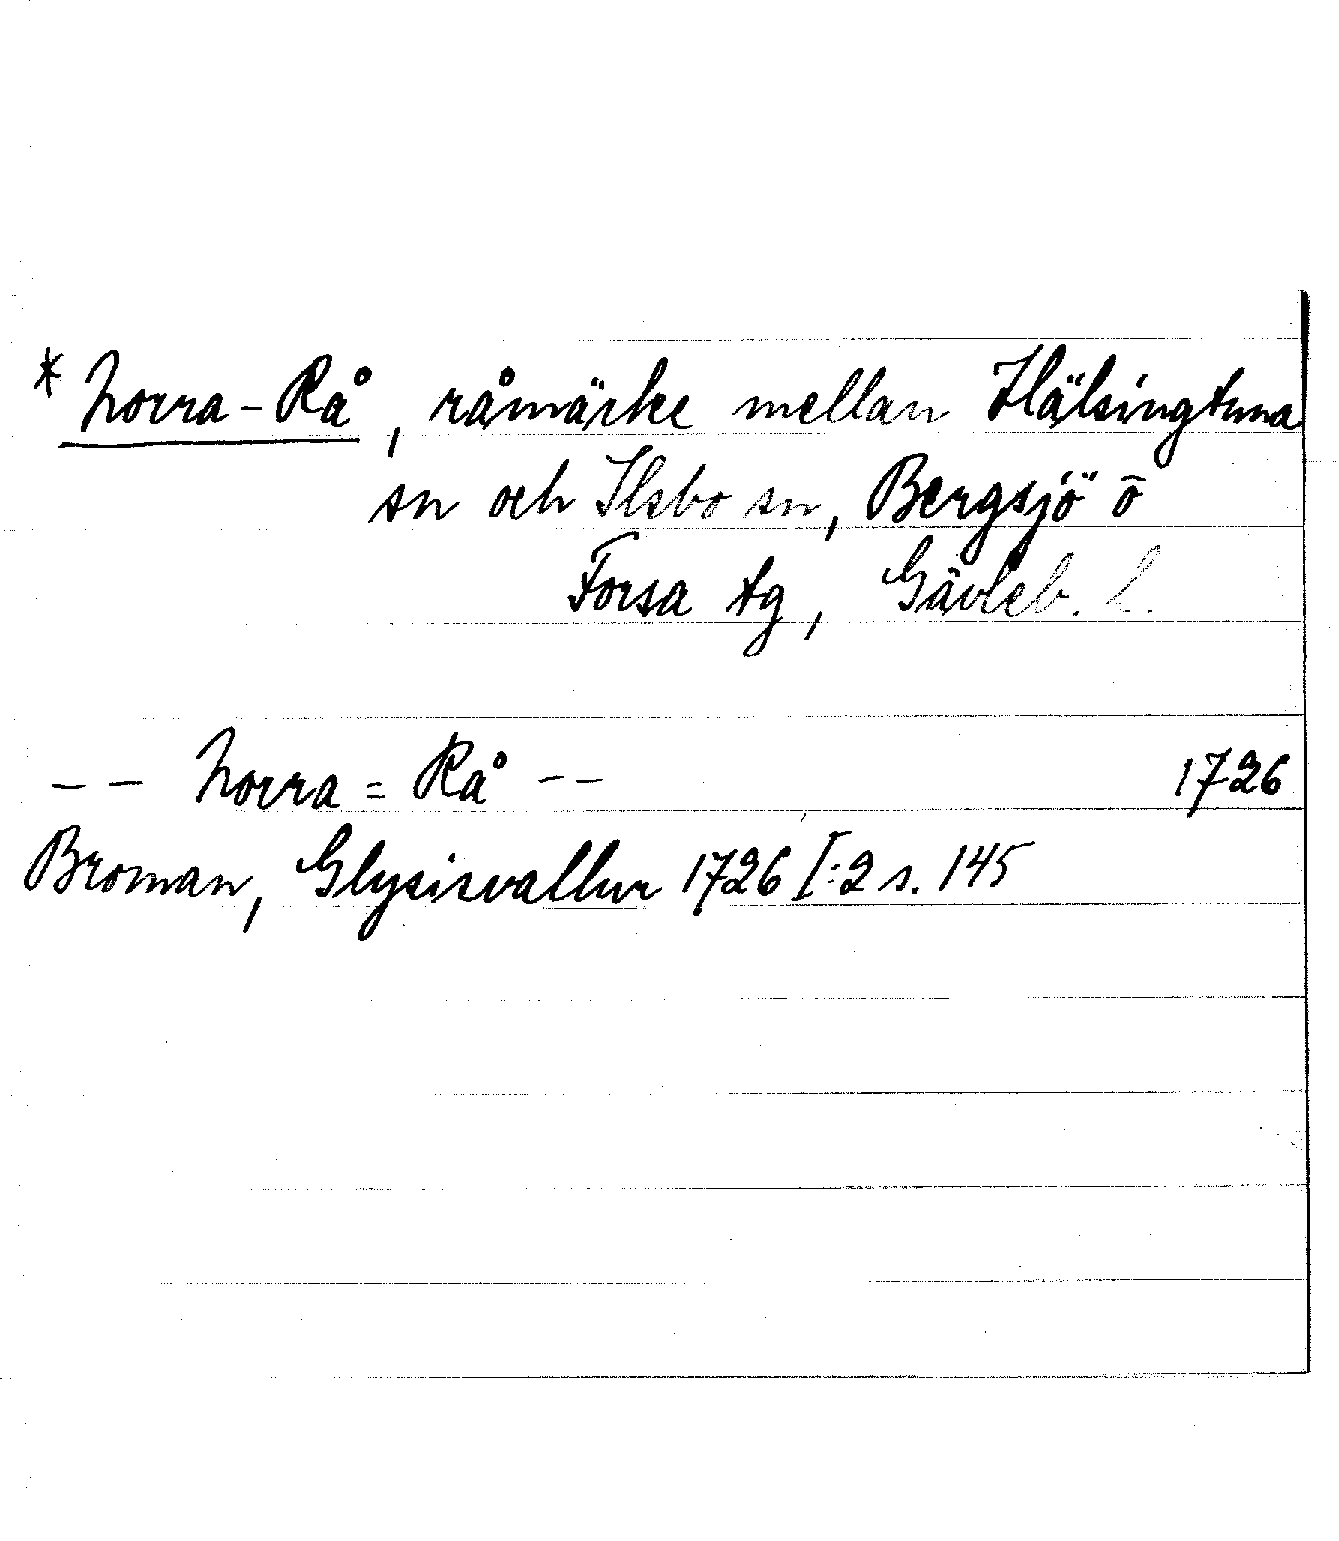 * Norra-Rå, råmärke mellan Hälsingtuna
sn och Ilsbo sn, Bergsjö o
Forsa tg, Gävleb. l.
-- Norra = Rå -- 1726
Broman, Glysisvallur 1726 I:2 s. 145